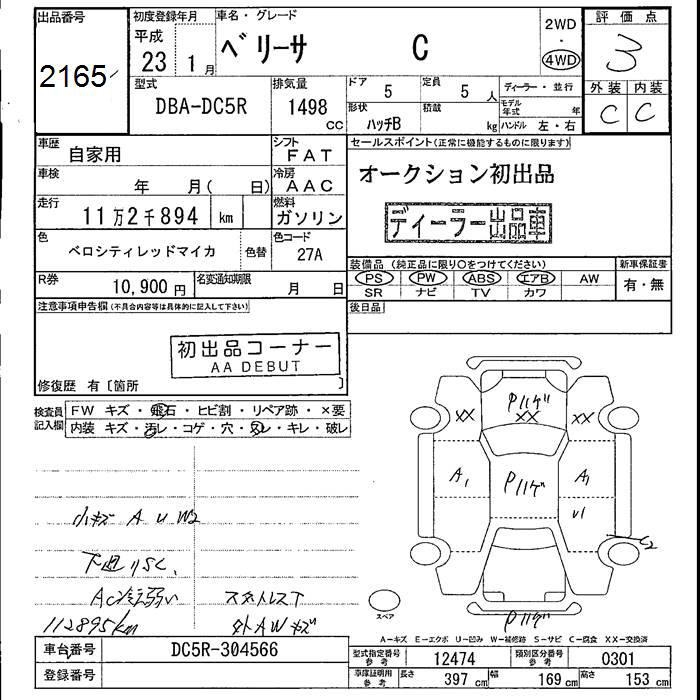 出品番号
2165
初度登録年月
平成
23 1月
車名・グレード
ベリーサ C
2WD
・
4WD
評価点
3
外装 内装
C C
型式
DBA-DC5R
排気量
1498
CC
ドア 5
定員 5 人
形状 ハッチB
積載 kg
ディーラー・並行
モデル年式 年
ハンドル 左・右
車歴 自家用
シフト FAT
車検 年 月( 日)
冷房 AAC
走行 11万2千894 km
燃料 ガソリン
色 ベロシティレッドマイカ
色替
色コード 27A
R券 10,900円
名変通知期限 月 日
セールスポイント(正常に機能するものに限ります)
オークション初出品
ディーラー出品車
装備品(純正品に限り○をつけてください)
PS PW ABS エアB AW
SR ナビ TV カワ
新車保証書
有・無
後日品
注意事項申告欄(不具合内容等は具体的に記入して下さい)
初出品コーナー
AA DEBUT
修復歴 有〔箇所 〕
検査員記入欄
FW キズ・飛石・ヒビ割・リペア跡・×要
内装 キズ・汚レ・コゲ・穴・スレ・キレ・破レ
小キズ A U W2
下廻リSC.
AC冷え弱い
112895km
スタットレスT
外AWキズ
XX
Pハゲ
XX
XX
A1
Pハゲ
A1
U1
C2
Pハゲ
スペア
A－キズ E－エクボ U－凹み W－補修跡 S－サビ C－腐食 XX－交換済
車台番号 DC5R-304566
登録番号
型式指定番号 参考 12474
類別区分番号 参考 0301
車庫証明用 参考 長さ 397 cm 幅 169 cm 高さ 153 cm